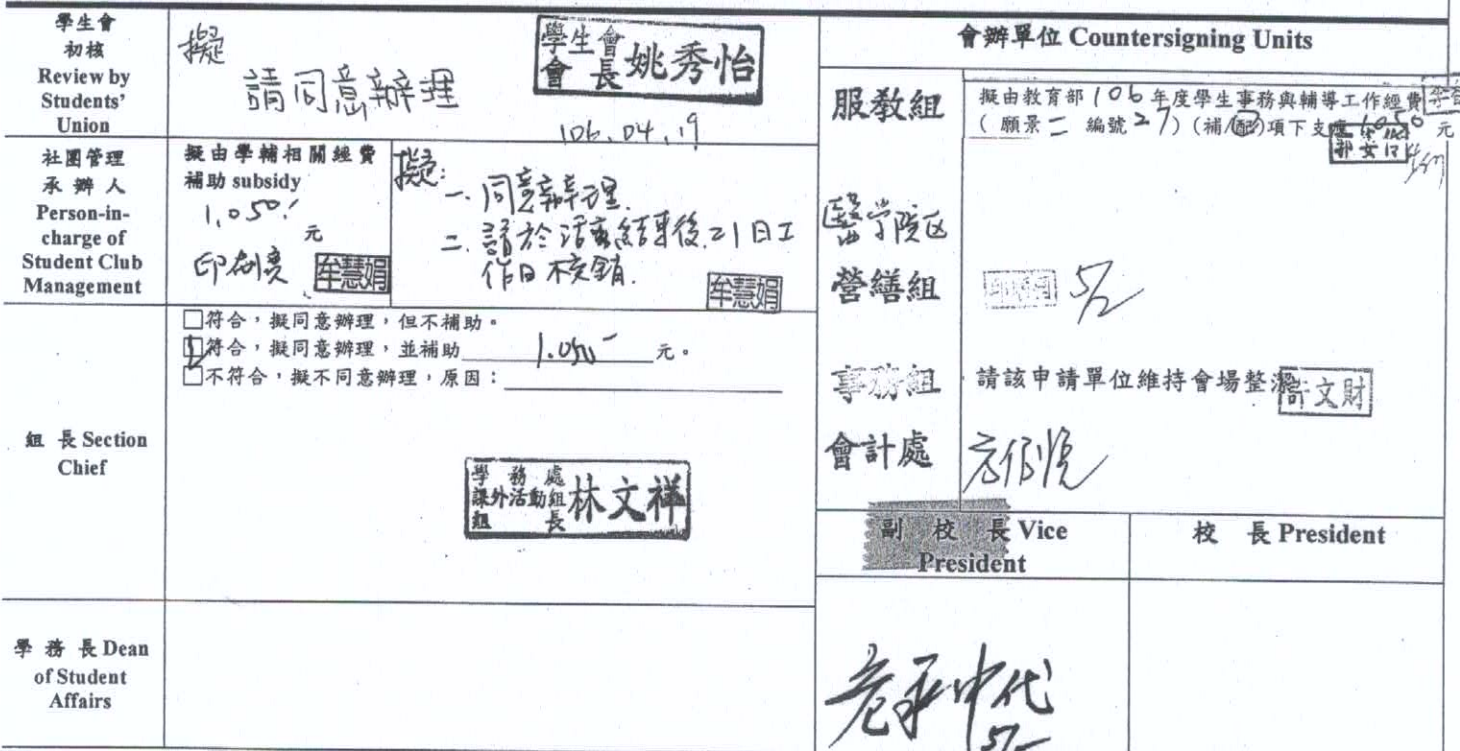 學生會
初核
Review by
Students'
Union
擬
請同意辦理
學生會
會長 姚秀怡
106.04.19
社團管理
承辦人
Person-in-
charge of
Student Club
Management
擬由學輔相關經費
補助 subsidy
1,050.
元
印刷費
牟慧娟
擬:
一. 同意辦理.
二. 請於活動結束後21日工
作日核銷.
牟慧娟
組 長 Section
Chief
□符合,擬同意辦理,但不補助。
□符合,擬同意辦理,並補助 1.050 元。
□不符合,擬不同意辦理,原因:
學務處
課外活動組
組長 林文祥
學務長 Dean
of Student
Affairs
會辦單位 Countersigning Units
服教組
擬由教育部106年度學生事務與輔導工作經費
(願景二 編號27)(補/配)項下支應1050元
醫學院區
營繕組
5/2
事務組
請該申請單位維持會場整潔
許文財
會計處
副校長 Vice
President
校 長 President